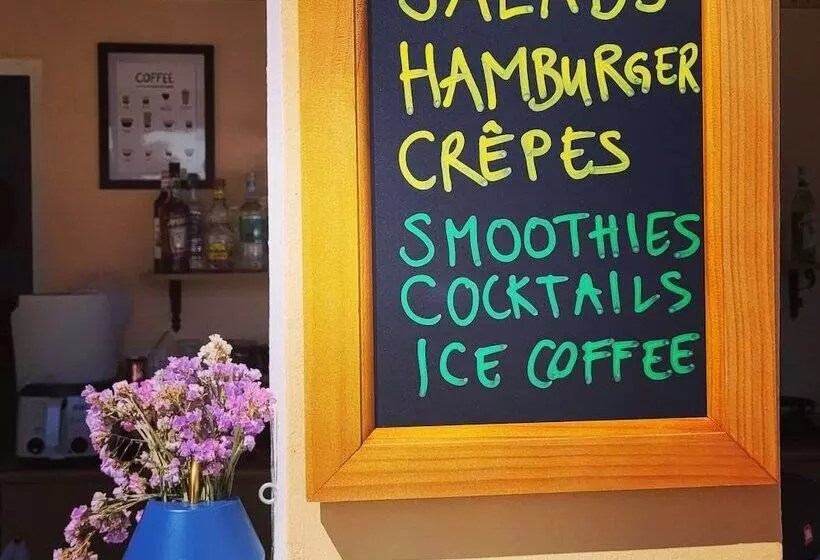 COFFEE
SALADS
HAMBURGER
CRÊPES
SMOOTHIES
COCKTAILS
ICE COFFEE